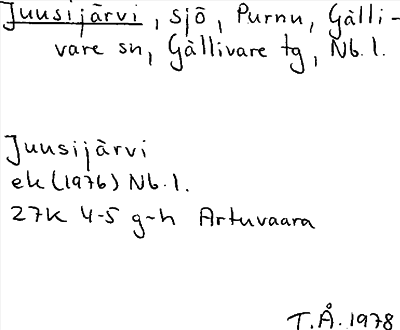 Juusijärvi, sjö, Purnu, Gälli-
vare sn, Gällivare tg, Nb.l.
Juusijärvi
ek (1976) Nb.l.
27K 4-5 g-h Artuvaara
T.Å. 1978